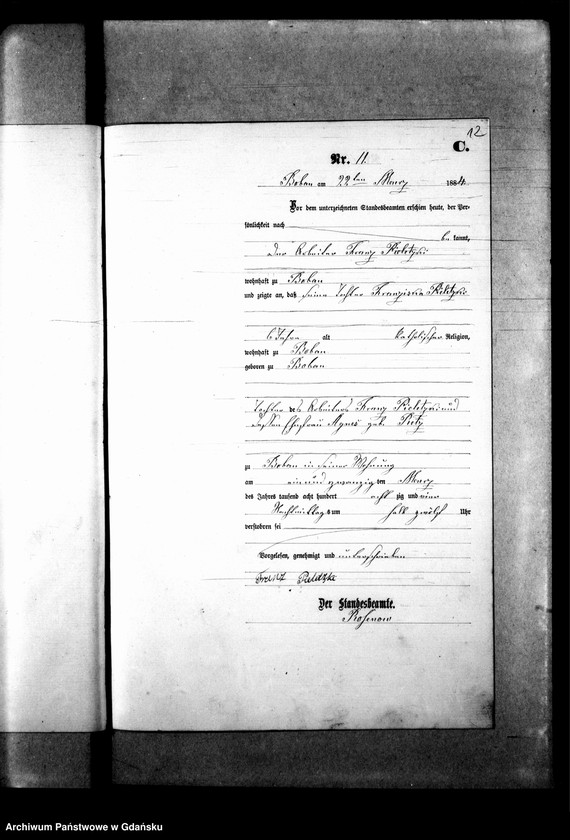 12
C.
Nr. 11.
Boban am 22ten März 1884.
Vor dem unterzeichneten Standesbeamten erschien heute, der Per-
sönlichkeit nach
be kannt,
der Arbeiter Franz
wohnhaft zu Boban
und zeigte an, daß seine Tochter Franziska
6 Jahre alt katholischer Religion,
wohnhaft zu Boban
geboren zu Boban
Tochter des Arbeiters Franz und
dessen Ehefrau Agnes geb.
zu Boban in seiner Wohnung
am ein und zwanzig ten März
des Jahres tausend acht hundert acht zig und vier
Nachmittags um halb zwölf Uhr
verstorben sei
Vorgelesen, genehmigt und unterschrieben
Franz
Der Standesbeamte.
Rosenow
Archiwum Państwowe w Gdańsku